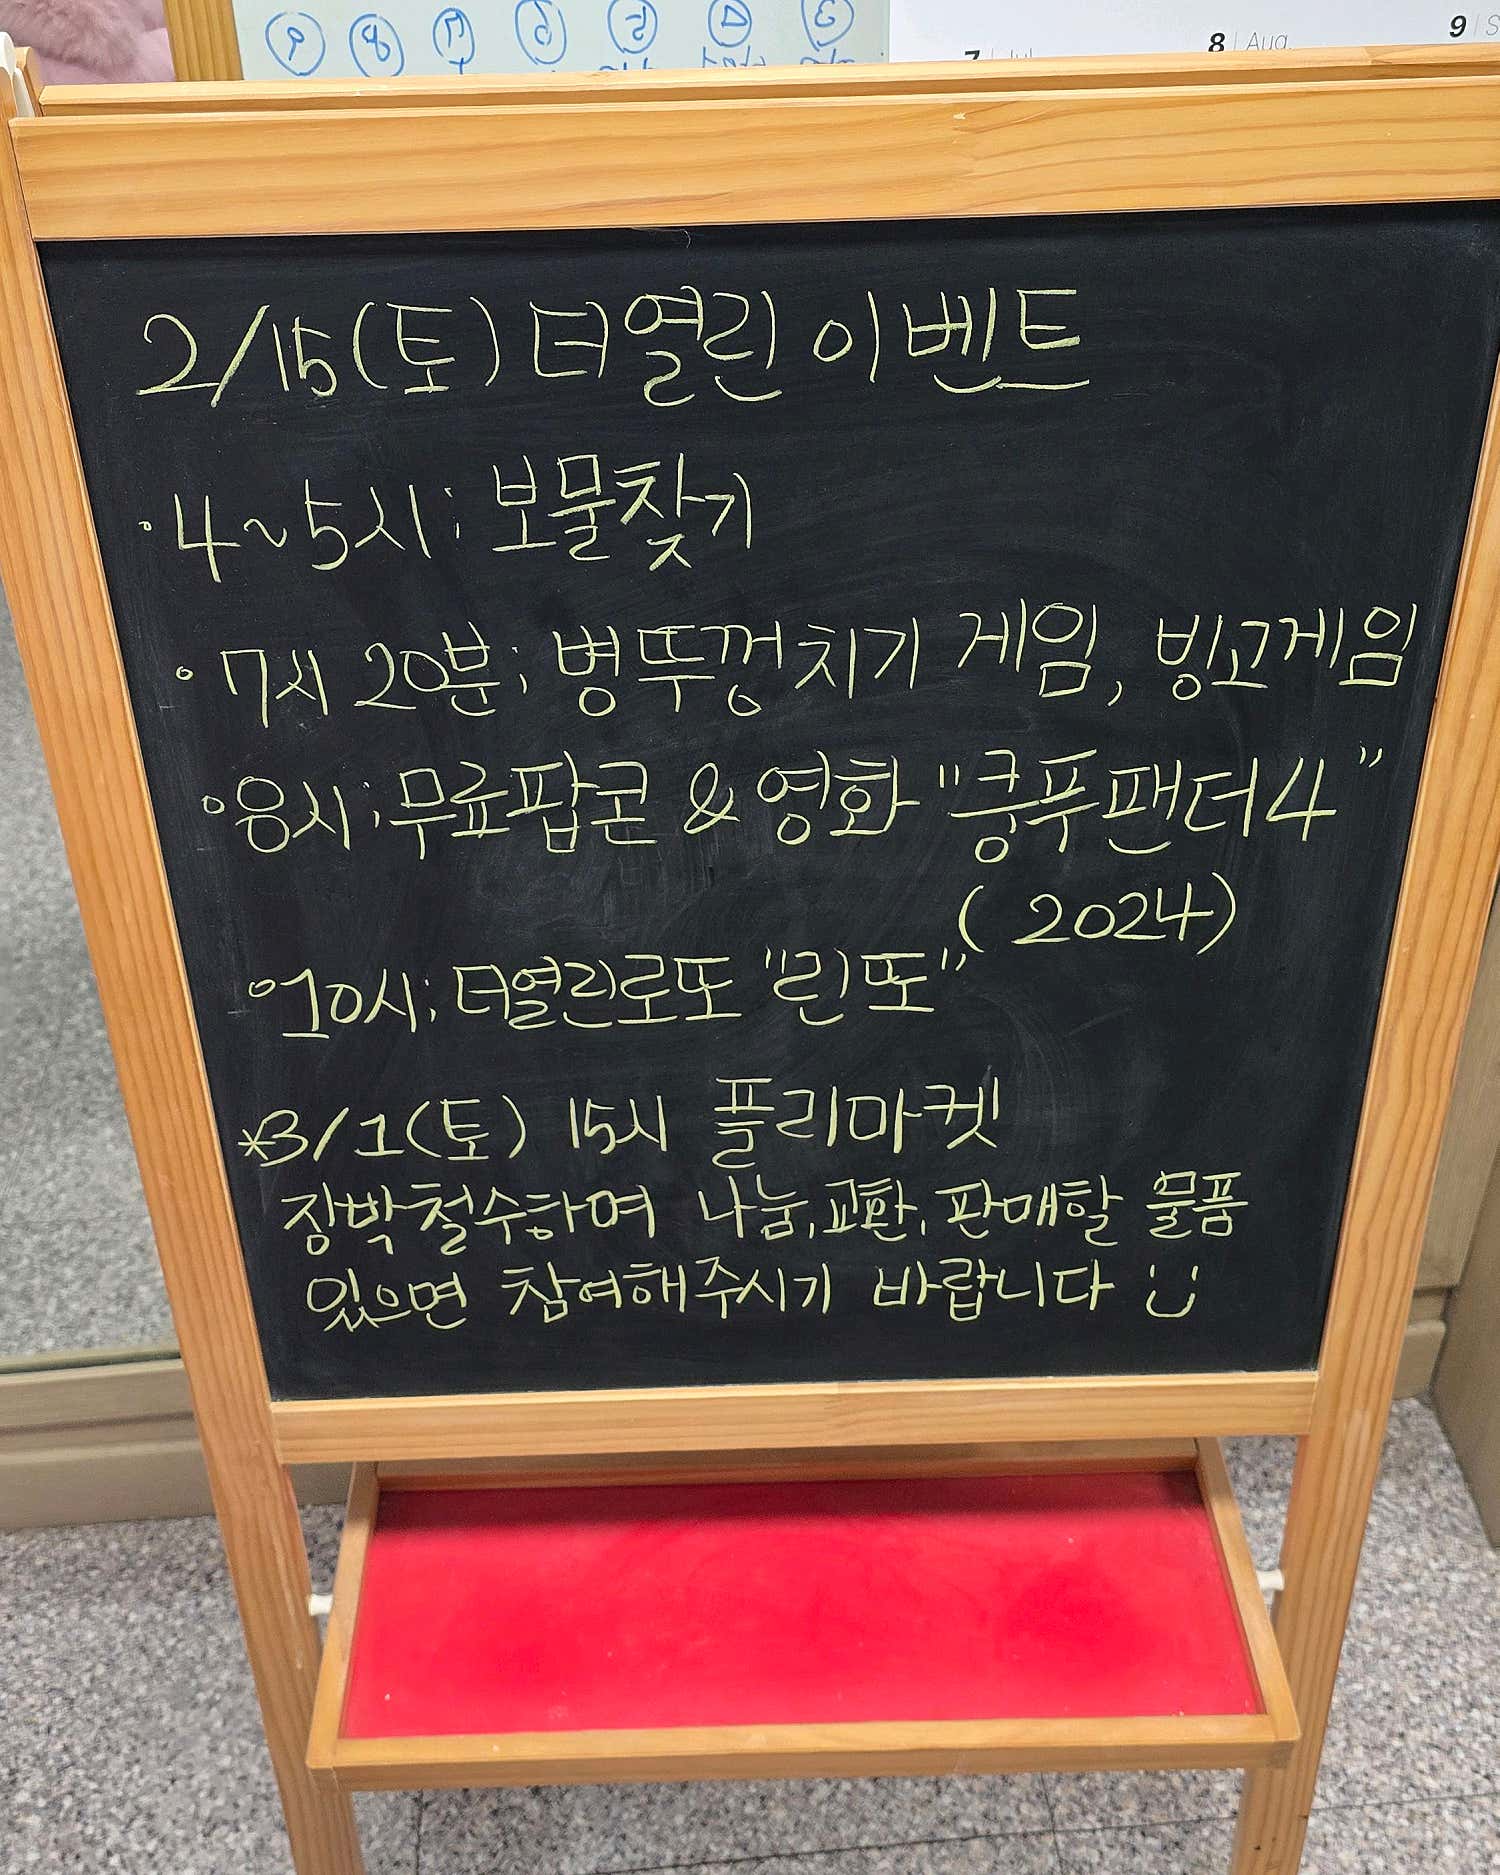 7 | Jul
8 | Aug.
9 | S
2/15(토) 터열린 이벤트
· 4~5시: 보물찾기
· 7시 20분: 병뚜껑치기 게임, 빙고게임
· 8시: 무료팝콘 & 영화 "쿵푸팬더4"
(2024)
· 10시: 터열린로또 "린또"
*3/1(토) 15시 플리마켓
장박철수하며 나눔, 교환, 판매할 물품
있으면 참여해주시기 바랍니다 :)